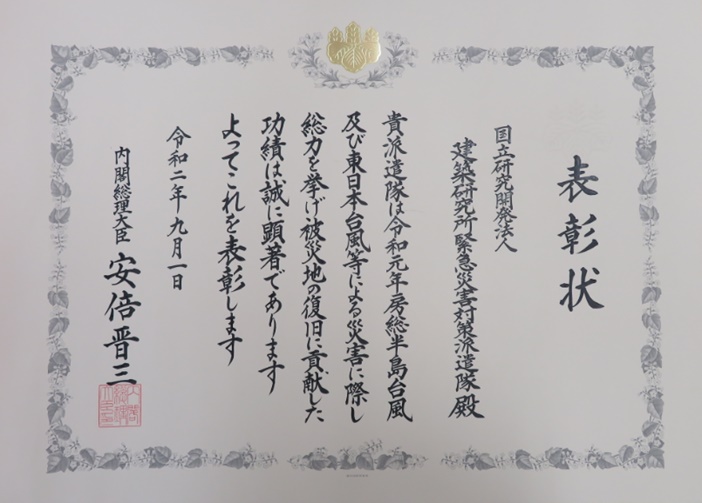 表彰状
国立研究開発法人
建築研究所緊急災害対策派遣隊殿
貴派遣隊は令和元年房総半島台風
及び東日本台風等による災害に際し
総力を挙げ被災地の復旧に貢献した
功績は誠に顕著であります
よってこれを表彰します
令和二年九月一日
内閣総理大臣 安倍晋三